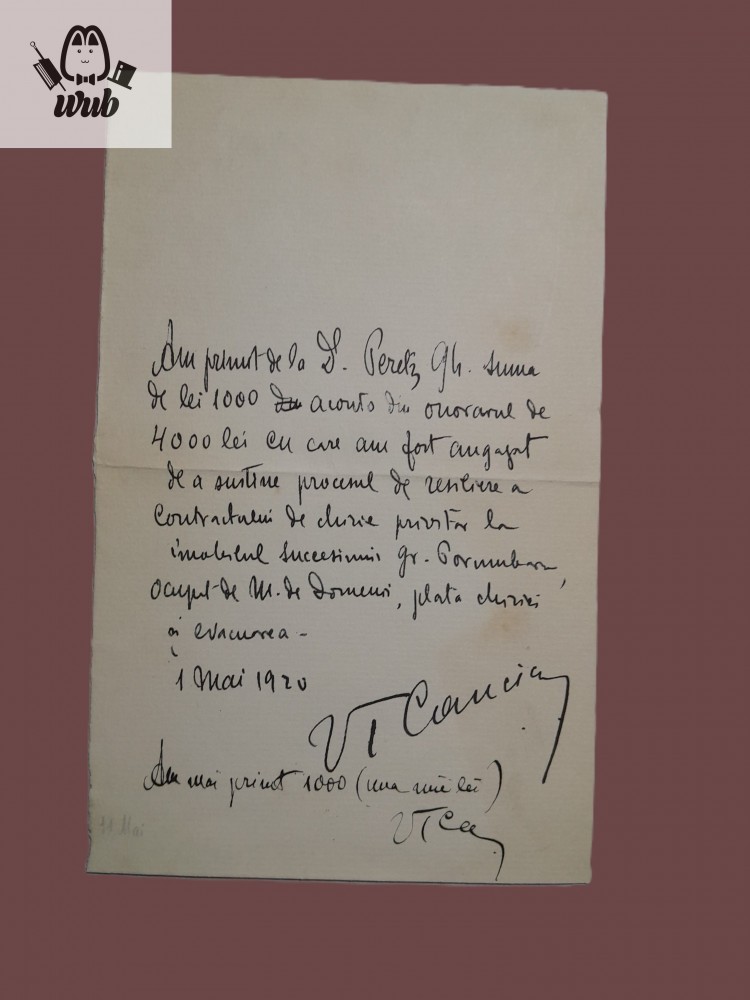 wub
Am primit de la D. Peretz Gh. suma
de lei 1000 aconto din onorarul de
4000 lei cu care am fost angajat
de a susține procesul de reziliere a
contractului de chirie privitor la
imobilul succesiunii Gr. Porumbaru,
ocupat de M. de Domenii, plata chiriei
și evacuarea -
1 Mai 1920
VT
Am mai primit 1000 (una mie lei)
11 Mai